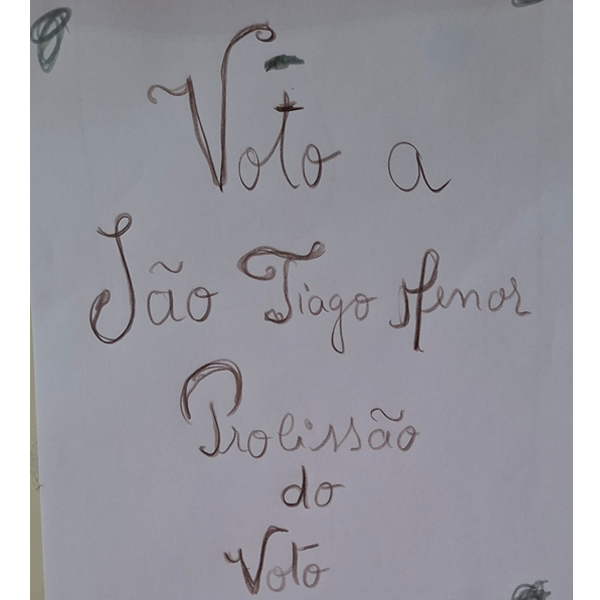 Voto a
São Tiago Menor
Prolissão
do
Voto